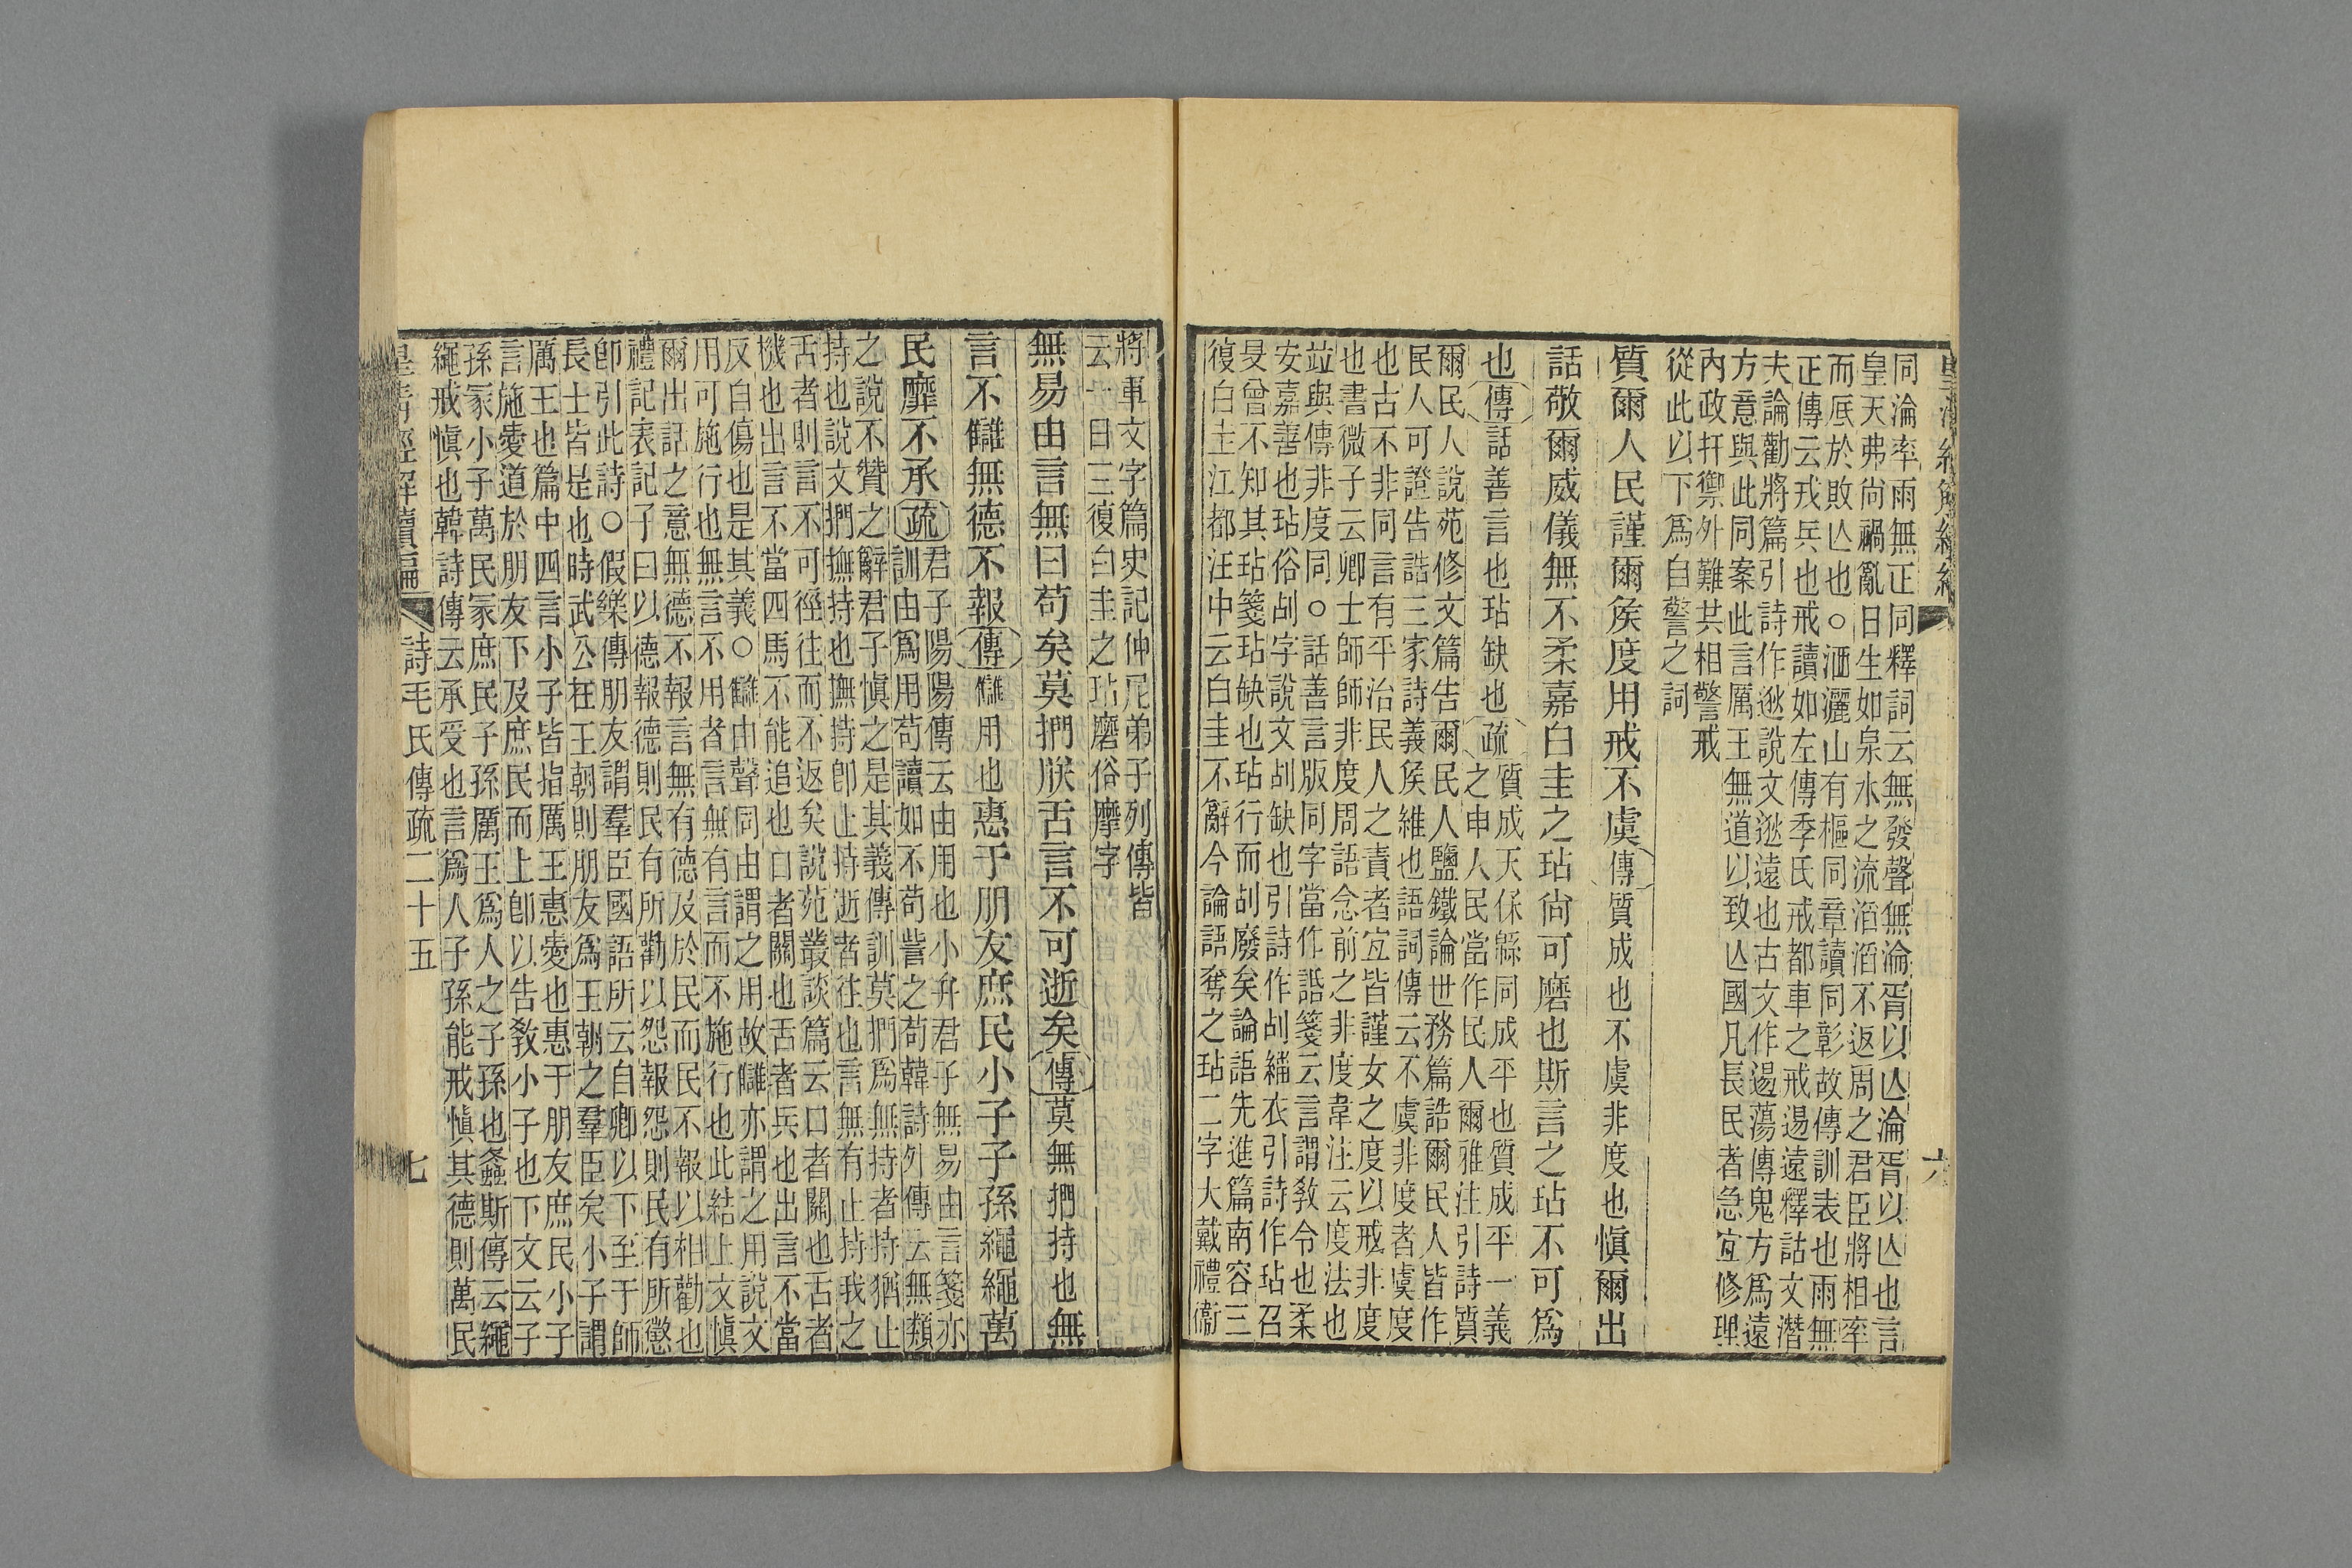 同淪率雨無正同釋詞云無發聲無淪胥以亾淪胥以亾也言
皇天弗尚禍亂日生如泉水之流滔滔不返周之君臣將相率
而厎於敗亾也○洒灑山有樞同章讀同彰故傳訓表也雨無
正傳云戎兵也戒讀如左傳季氏戒都車之戒逷遠釋詁文潛
夫論勸將篇引詩作逖說文逖遠也古文作逷蕩傳鬼方爲遠
方意與此同案此言厲王無道以致亾國凡長民者急宜修理
內政扞禦外難其相警戒
從此以下爲自警之詞
質爾人民謹爾侯度用戒不虞傳質成也不虞非度也愼爾出
話敬爾威儀無不柔嘉白圭之玷尙可磨也斯言之玷不可爲
也傳話善言也玷缺也疏質成天保緜同成平也質成平一義
之申人民當作民人爾雅注引詩質
爾民人說苑修文篇吿爾民人鹽鐵論世務篇誥爾民人皆作
民人可證告誥三家詩義侯維也語詞傳云不虞非度者虞度
也古不非同言有平治民人之責者宜皆謹女之度以戒非度
也書微子云卿士師師非度周語念前之非度韋注云度法也
竝與傳非度同○話善言版同字當作䛡箋云言謂敎令也柔
安嘉善也玷俗㓠字說文㓠缺也引詩作㓠緇衣引詩作玷召
旻曾不知其玷箋玷缺也玷行而㓠廢矣論語先進篇南容三
復白圭江都汪中云白圭不辭今論語奪之玷二字大戴禮衞
六
將軍文字篇史記仲尼弟子列傳皆
云一日三復白圭之玷磨俗摩字
無易由言無曰苟矣莫捫朕舌言不可逝矣傳莫無捫持也無
言不讎無德不報傳讎用也惠于朋友庶民小子子孫繩繩萬
民靡不承疏君子陽陽傳云由用也小弁君子無易由言箋亦
訓由爲用苟讀如不苟訾之苟韓詩外傳云無類
之說不贊之辭君子愼之是其義傳訓莫捫爲無持者持猶止
持也說文捫撫持也撫持卽止持逝者往也言無有止持我之
舌者則言不可徑往而不返矣說苑叢談篇云口者關也舌者
機也出言不當四馬不能追也口者關也舌者兵也出言不當
反自傷也是其義○讎由聲同由謂之用故讎亦謂之用說文
用可施行也無言不用者言無有言而不施行也此結上文愼
爾出話之意無德不報言無有德及於民而民不報以相勸也
禮記表記子曰以德報德則民有所勸以怨報怨則民有所懲
卽引此詩○假樂傳朋友謂羣臣國語所云自卿以下至于師
長士皆是也時武公在王朝則朋友爲王朝之羣臣矣小子謂
厲王也篇中四言小子皆指厲王惠愛也惠于朋友庶民小子
言施愛道於朋友下及庶民而上卽以吿敎小子也下文云子
孫冢小子萬民冢庶民子孫厲王爲人之子孫也螽斯傳云繩
繩戒愼也韓詩傳云承受也言爲人子孫能戒愼其德則萬民
皇淸經解續編 詩毛氏傳疏二十五 七